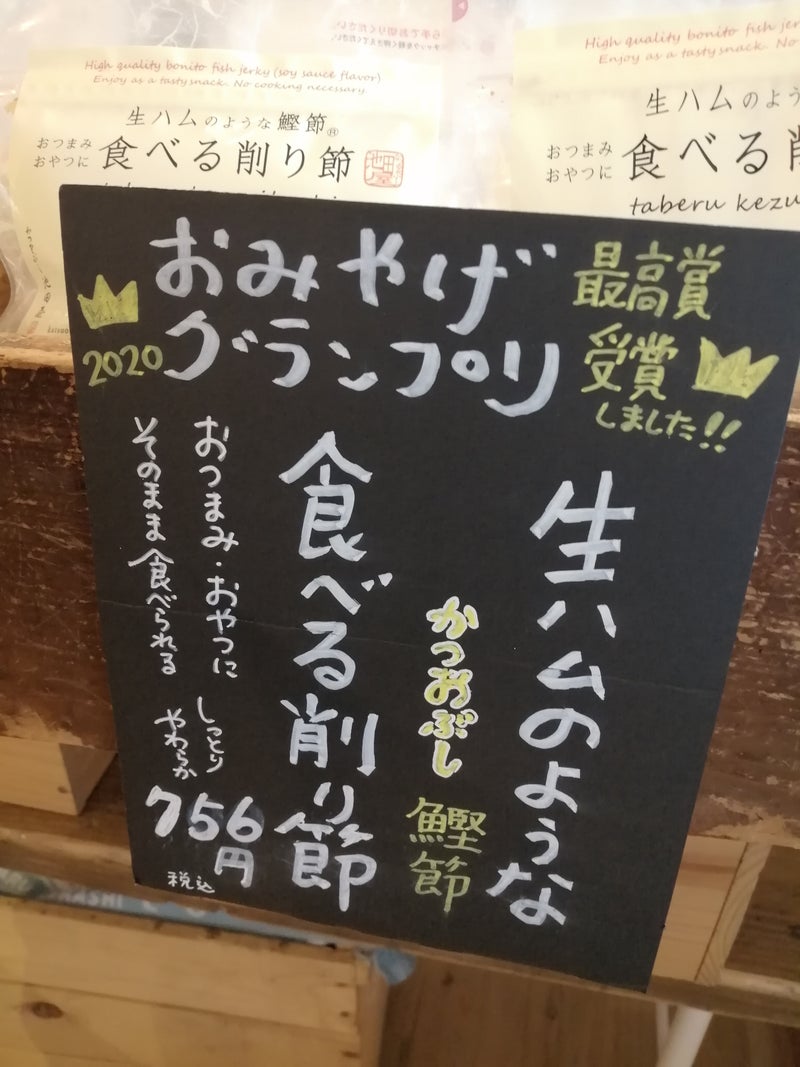 High quality bonito fish jerky (soy sauce flavor)
Enjoy as a tasty snack. No cooking necessary
生ハムのような鰹節®
おつまみ
おやつに
食べる削り節
High quality bonito fish jer
Enjoy as a tasty snack. No
生ハムのよう
おつまみ
おやつに
食べる削
taberu kezu
おみやげ
グランプリ
2020
最高賞
受賞
しました!!
生ハムのような
かつおぶし
鰹節
食べる削り節
おつまみ・おやつに
そのまま食べられる
しっとり
やわらか
756
円
税込